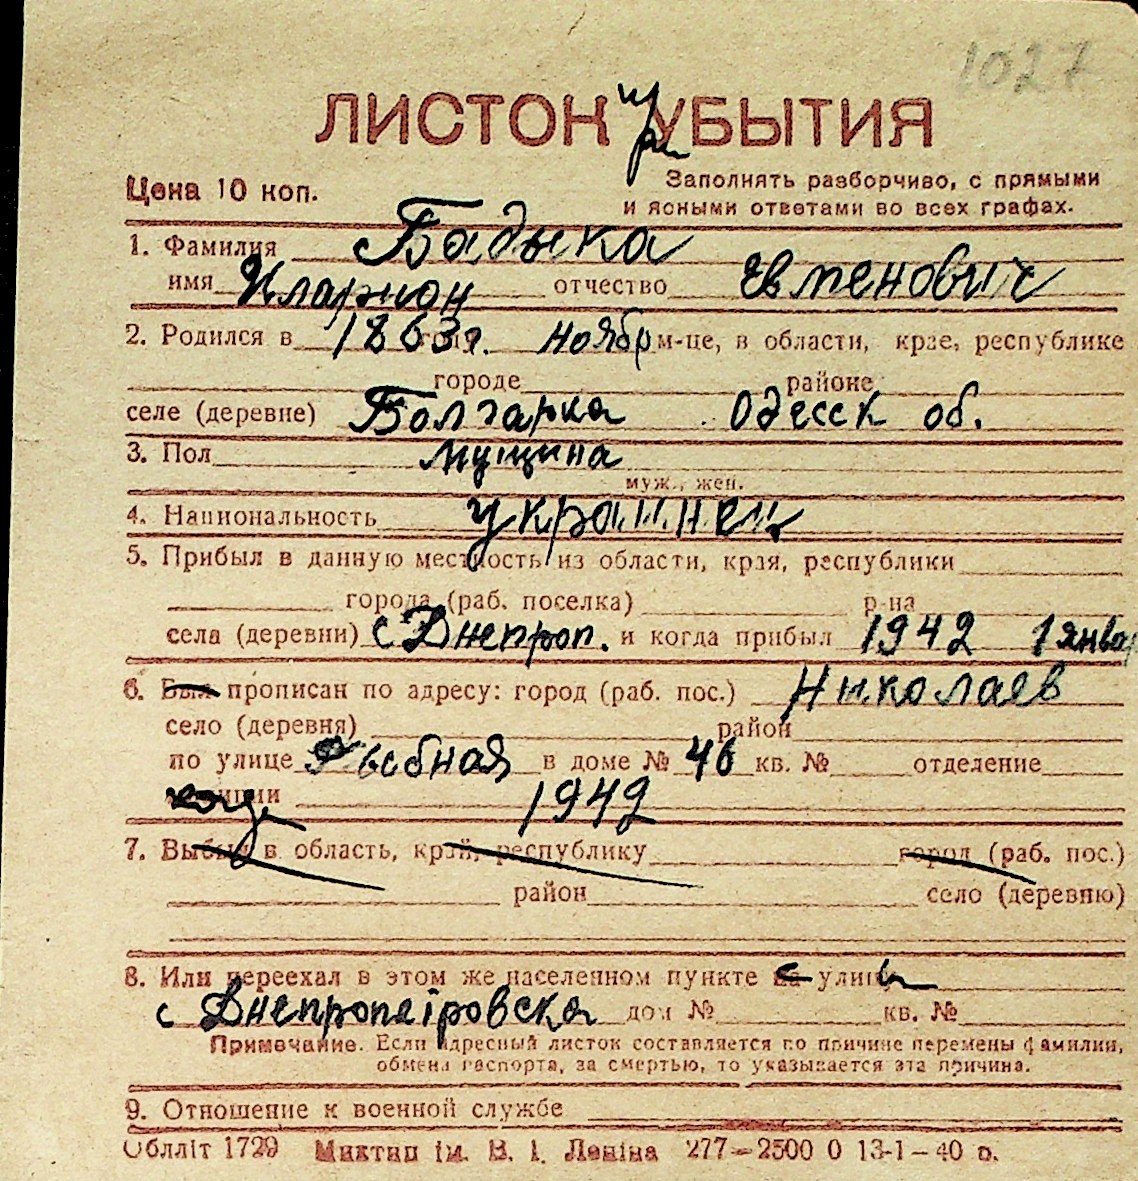 1027
ЛИСТОК при УБЫТИЯ
Цена 10 коп.
Заполнять разборчиво, с прямыми
и ясными ответами во всех графах.
1. Фамилия Бадыка
имя Иларион отчество Евменович
2. Родился в 1863 г. ноябр м-це, в области, крае, республике
городе районе
селе (деревне) Болгарка Одесск об.
3. Пол мущина
муж., жен.
4. Национальность украинец
5. Прибыл в данную местность из области, края, республики
города (раб. поселка) р-на
села (деревни) с Днепроп. и когда прибыл 1942 1 янва
6. Был прописан по адресу: город (раб. пос.) Николаев
село (деревня) район
по улице в доме № 46 кв. № отделение
1942
7. Выбыл в область, край, республику город (раб. пос.)
район село (деревню)
8. Или переехал в этом же населенном пункте с улицы
с Днепропетровска дом № кв. №
Примечание. Если адресный листок составляется по причине перемены фамилии,
обмена паспорта, за смертью, то указывается эта причина.
9. Отношение к военной службе
Обллiт 1729 Миктип iм. В. І. Ленiна 277—2500 0 13-1—40 р.